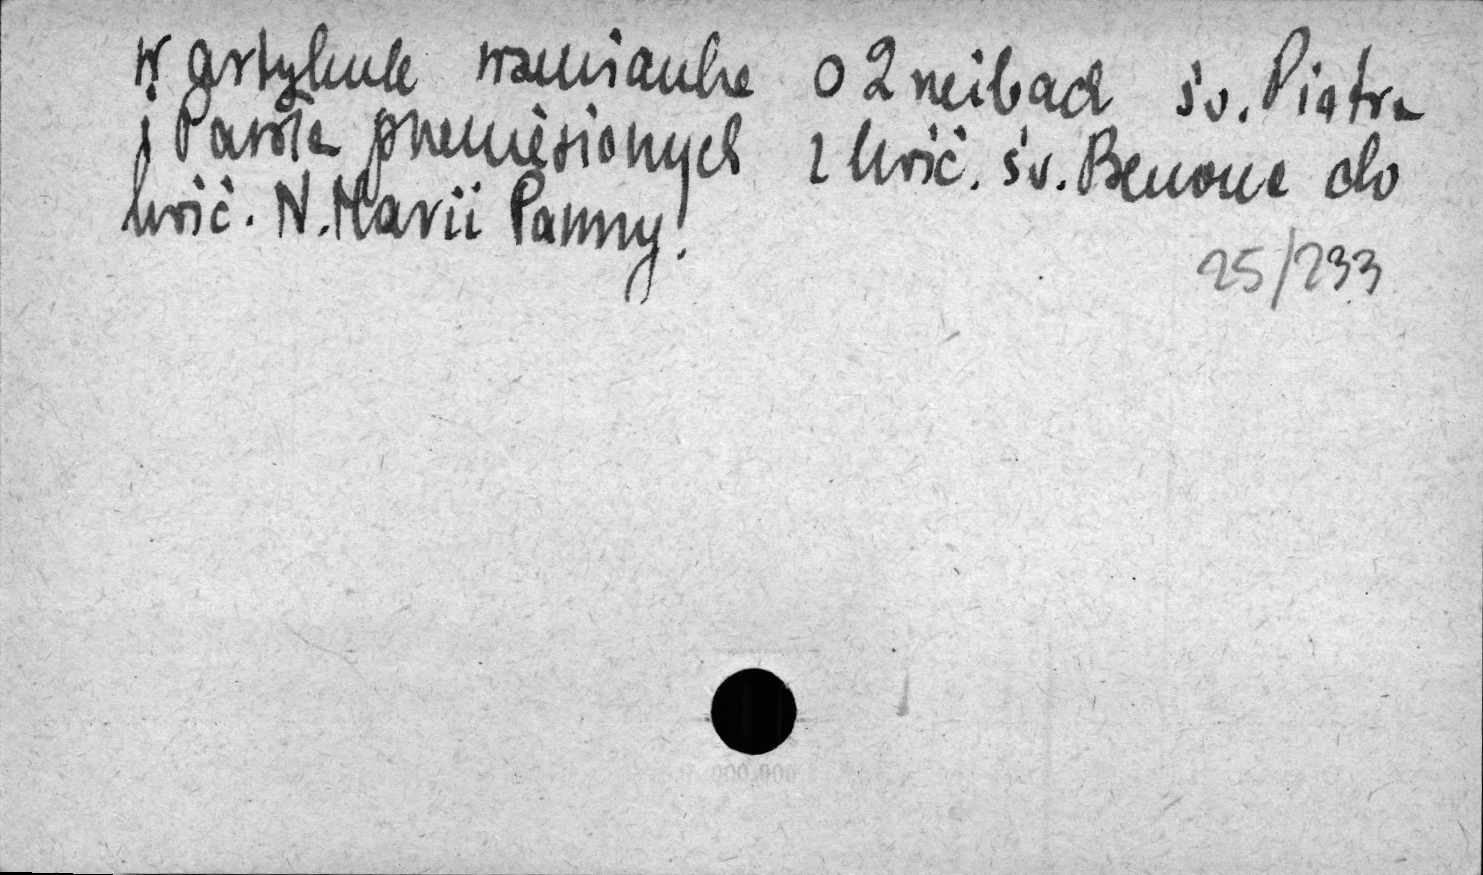 W artykule wzmianka o 2 rzeźbach św. Piotra
i Pawła przeniesionych z kośc. św. Benona do
kośc. N. Marii Panny.
25/233